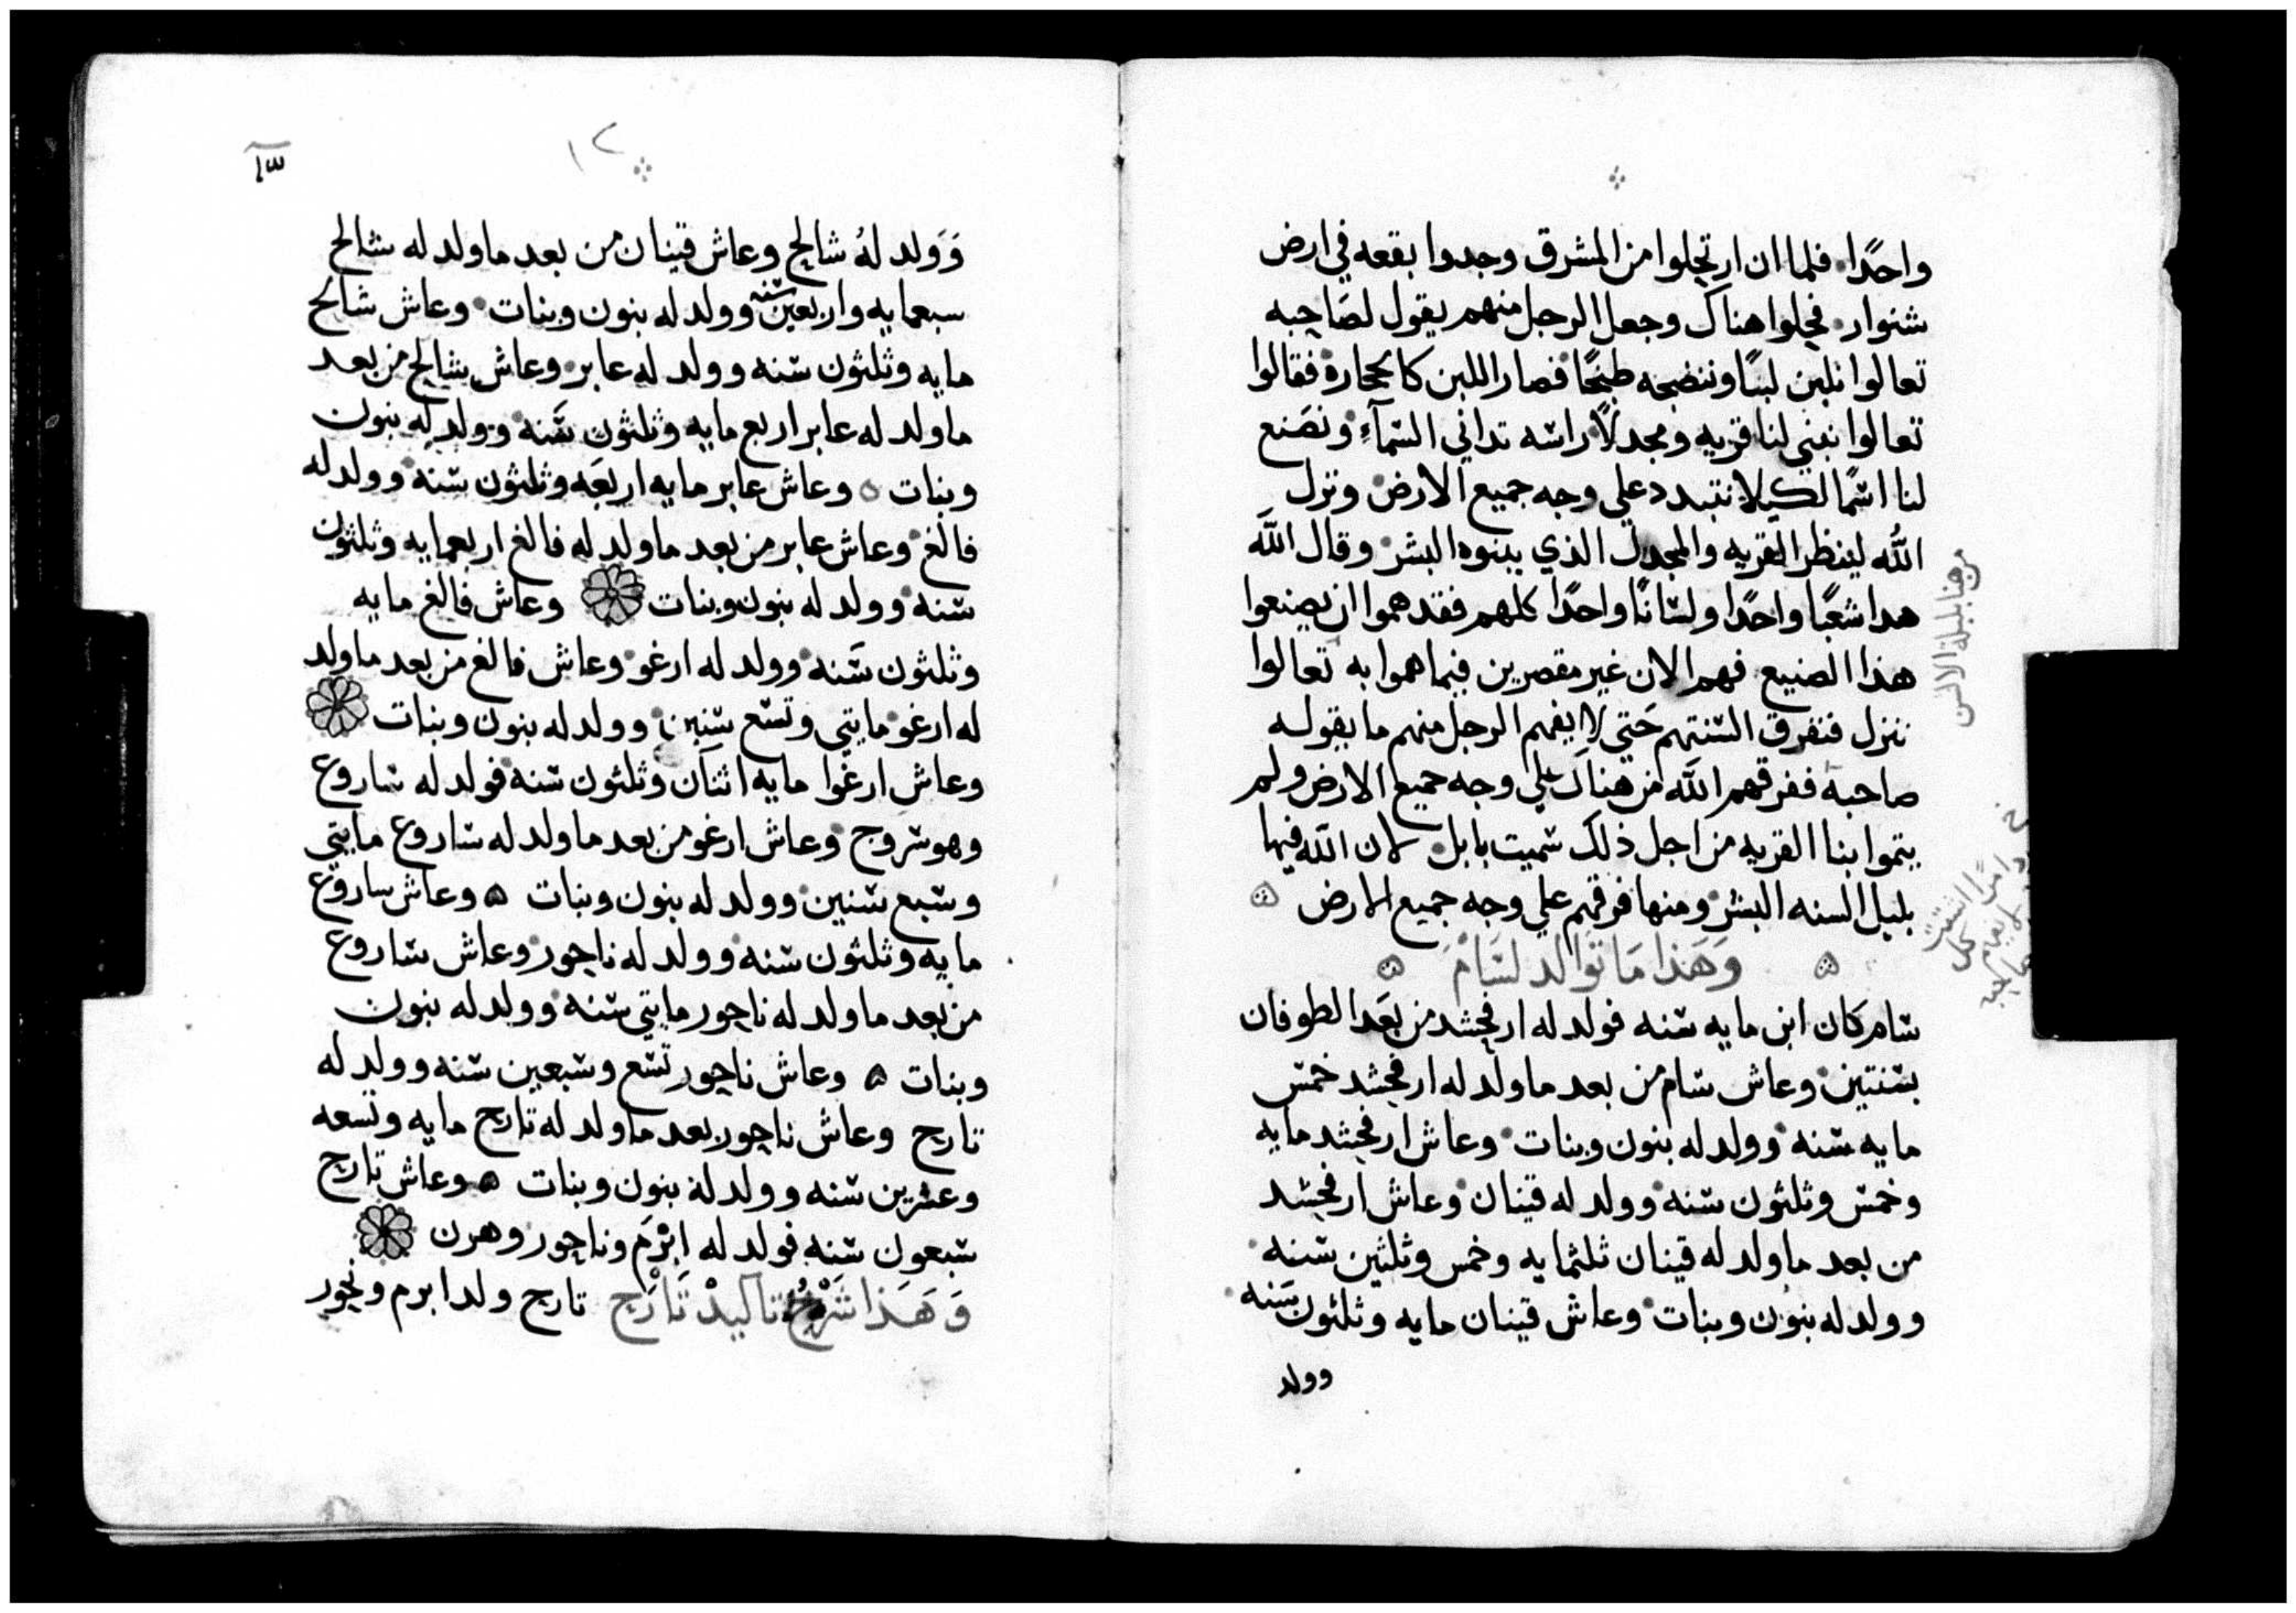 واحدًا فلما ان ارتحلوا من المشرق وجدوا بقعه في ارض
شنوار فحلوا هناك وجعل الرجل منهم يقول لصاحبه
تعالوا نلبن لبنًا وننضجه طبخًا فصار اللبن كالحجارة فقالوا
تعالوا نبني لنا قريه ومجدلاً راسه تداني السمآءِ ونصَنع
لنا اسمًا لكيلا نتبدد علي وجه جميع الارض ونزل
اللّه لينظر القريه والمجدل الذي يبنوه البشر وقال اللّه
هدا شعبًا واحدًا ولسانًا واحدًا كلهم فقد هموا ان يصنعوا
هذا الصنيع فهم الان غير مقصرين فيما هموا به تعالوا
ننزل فنفرق السنتهم حَتي لا يفهم الرجل منهم ما يقوله
صاحبه ففرقهم اللّه من هناك علي وجه جميع الارض ولم
يتموا بنا القريه من اجل ذلك سميت بابل لان اللّه فيها
بلبل السنه البشر ومنها فرقهم علي وجه جميع الارض
وَهَذا مَا تَوالد لسَامْ
سام كان ابن مايه سنه فولد له ارفحشد من بعَد الطوفان
بسنتين وعاش سام من بعد ما ولد له ارفحشد خمس
مايه سنه وولد له بنون وبنات وعاش ارفحشد مايه
وخمس وثلثون سنه وولد له قينان وعاش ارفحشد
من بعد ما ولد له قينان ثلثمايه وخمس وثلثين سنه
وولد له بنون وبنات وعاش قينان مايه وثلثون سَنه
وولد
من هنا بلبلة الالسن
١٢
١٣
وَوَلد لهُ شالح وعاش قينان من بعد ما ولد له شالح
سبعمايه واربعين سنه وولد له بنون وبنات وعاش شالح
مايه وثلثون سنه وولد له عابر وعاش شالح من بعد
ما ولد له عابر اربع مايه وثلثون سَنه وولد له بنون
وبنات وعاش عابر مايه اربعَه وثلثون سنه وولد له
فالغ وعاش عابر من بعد ما ولد له فالغ اربعمايه وثلثون
سنه وولد له بنون وبنات وعاش فالغ مايه
وثلثون سَنه وولد له ارغو وعاش فالغ من بعد ما ولد
له ارغو مايتي وتسع سنين وولد له بنون وبنات
وعاش ارغوا مايه اثنان وثلثون سنه فولد له ساروع
وهو سروج وعاش ارغو من بعد ما ولد له ساروع مايتي
وسبع سنين وولد له بنون وبنات وعاش ساروع
مايه وثلثون سنه وولد له ناحور وعاش ساروع
من بعد ما ولد له ناحور مايتي سنه وولد له بنون
وبنات وعاش ناحور تسع وسبعين سنه وولد له
تارح وعاش ناحور بعد ما ولد له تارح مايه وتسعه
وعشرين سنه وولد له بنون وبنات وعاش تارح
سبعون سنه فولد له ابْرَم وناحور وهرن
وَهَذا شَرْحُ تاليدْ تَارَح تارح ولد ابرم ونحور